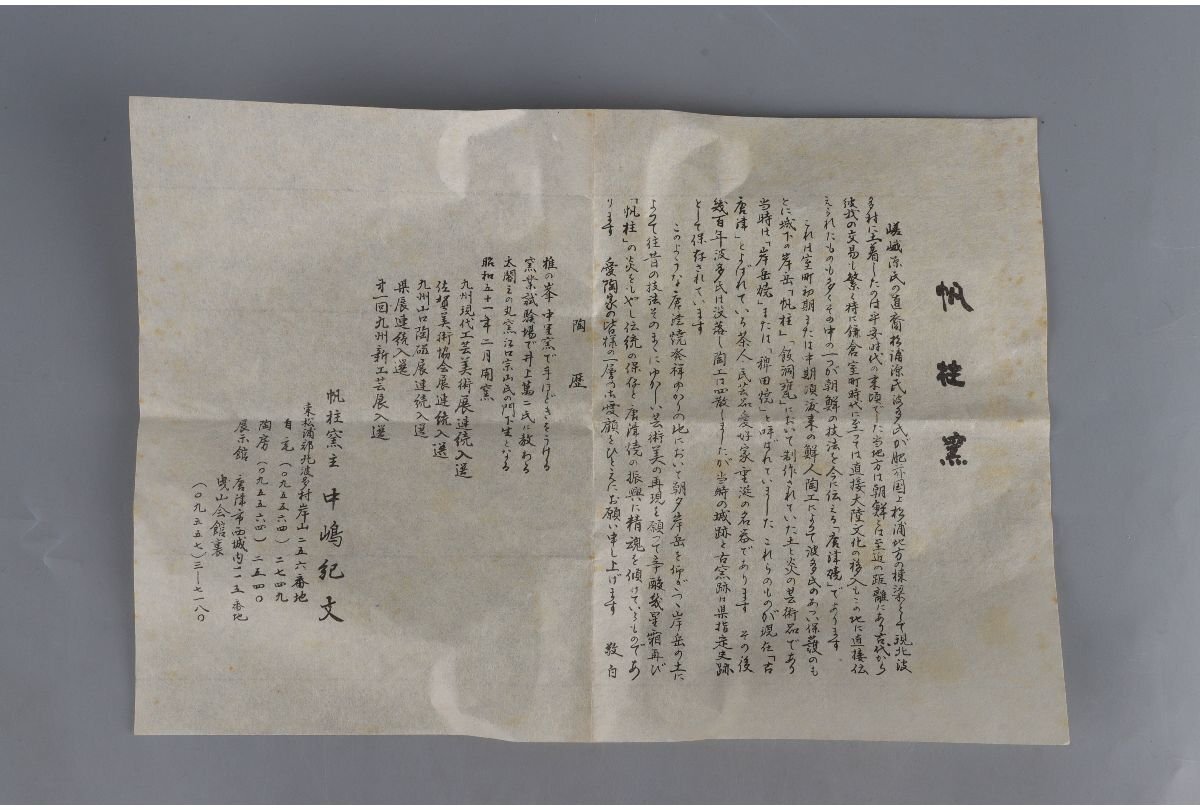 帆柱窯
嵯峨源氏の道裔松浦源氏波多氏が肥前国上松浦地方の棟梁として現北波
多村に土着したのは平安時代の末頃でした当地方は朝鮮とは至近の距離にあり古代から
彼我の交易も繁く特に鎌倉室町時代に至っては直接大陸文化の移入もこの地に直接伝
えられたものも多くその中の一つが朝鮮の技法を今に伝える「唐津焼」であります
これは室町初期または中期頃渡来の鮮人陶工によって波多氏のあつい保護のも
とに城下の岸岳「帆柱」「飯洞甕」において制作されていた土と炎の芸術品であり
当時は「岸岳焼」または「稗田焼」と呼ばれていました これらのものが現在「古
唐津」とよばれている茶人民芸名愛好家垂涎の名器であります その後
幾百年波多氏は没落し陶工は四散しましたが当時の城跡と古窯跡は県指定史跡
として保存されています
このような唐津焼発祥ゆかりの地において朝夕岸岳を仰ぎつゝ岸岳の土に
よって往昔の技法そのまゝにゆかしい芸術美の再現を願って辛酸幾星霜再び
「帆柱」の炎をもやし伝統の保存と唐津焼の振興に精魂を傾けているものであ
ります 愛陶家の皆様の一層の御愛顧をひとえにお願い申し上げます 敬白
陶歴
椎の峯 中里窯で手ほどきをうける
窯業試験場で井上萬二氏に教わる
太閤三の丸窯江口宗山氏の門下生となる
昭和五十一年二月開窯
九州現代工芸美術展連続入選
佐賀美術協会展連続入選
九州山口陶磁展連続入選
県展連続入選
第一回九州新工芸展入選
帆柱窯主 中嶋紀文
東松浦郡北波多村岸山二五六番地
自宅(〇九五五六四)二七四九
陶房(〇九五五六四)二五四〇
展示館 唐津市西城内二一五番地
曳山会館裏
(〇九五五七)三一七一八〇